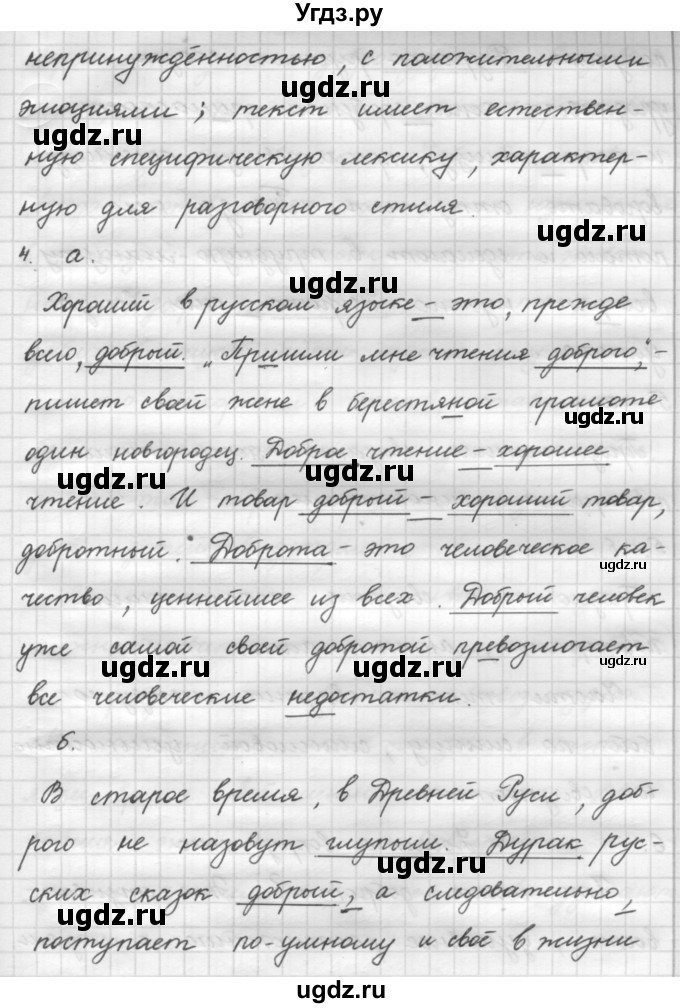 Угдз.ру
непринуждённостью, с положительными
ugdz.ru
эмоциями; текст имеет естествен-
ugdz.ru
ную специфическую лексику, характер-
ugdz.ru
ную для разговорного стиля.
ugdz.ru
4. а.
ugdz.ru
Хороший в русском языке - это, прежде
всего, добрый. „Пришли мне чтения доброго," -
ugdz.ru
пишет своей жене в берестяной грамоте
ugdz.ru
один новгородец. Доброе чтение - хорошее
ugdz.ru ugdz.ru
чтение. И товар добрый - хороший товар,
добротный. Доброта - это человеческое ка-
ugdz.ru
чество, ценнейшее из всех. Добрый человек
уже самой своей добротой превозмогает
ugdz.ru ugdz.ru ugdz.ru
все человеческие недостатки.
б.
В старое время, в Древней Руси, доб-
ugdz.ru
рого не назовут глупым. Дурак рус-
ugdz.ru
ских сказок добрый, а следовательно,
ugdz.ru
поступает по-умному и своё в жизни
ugdz.ru